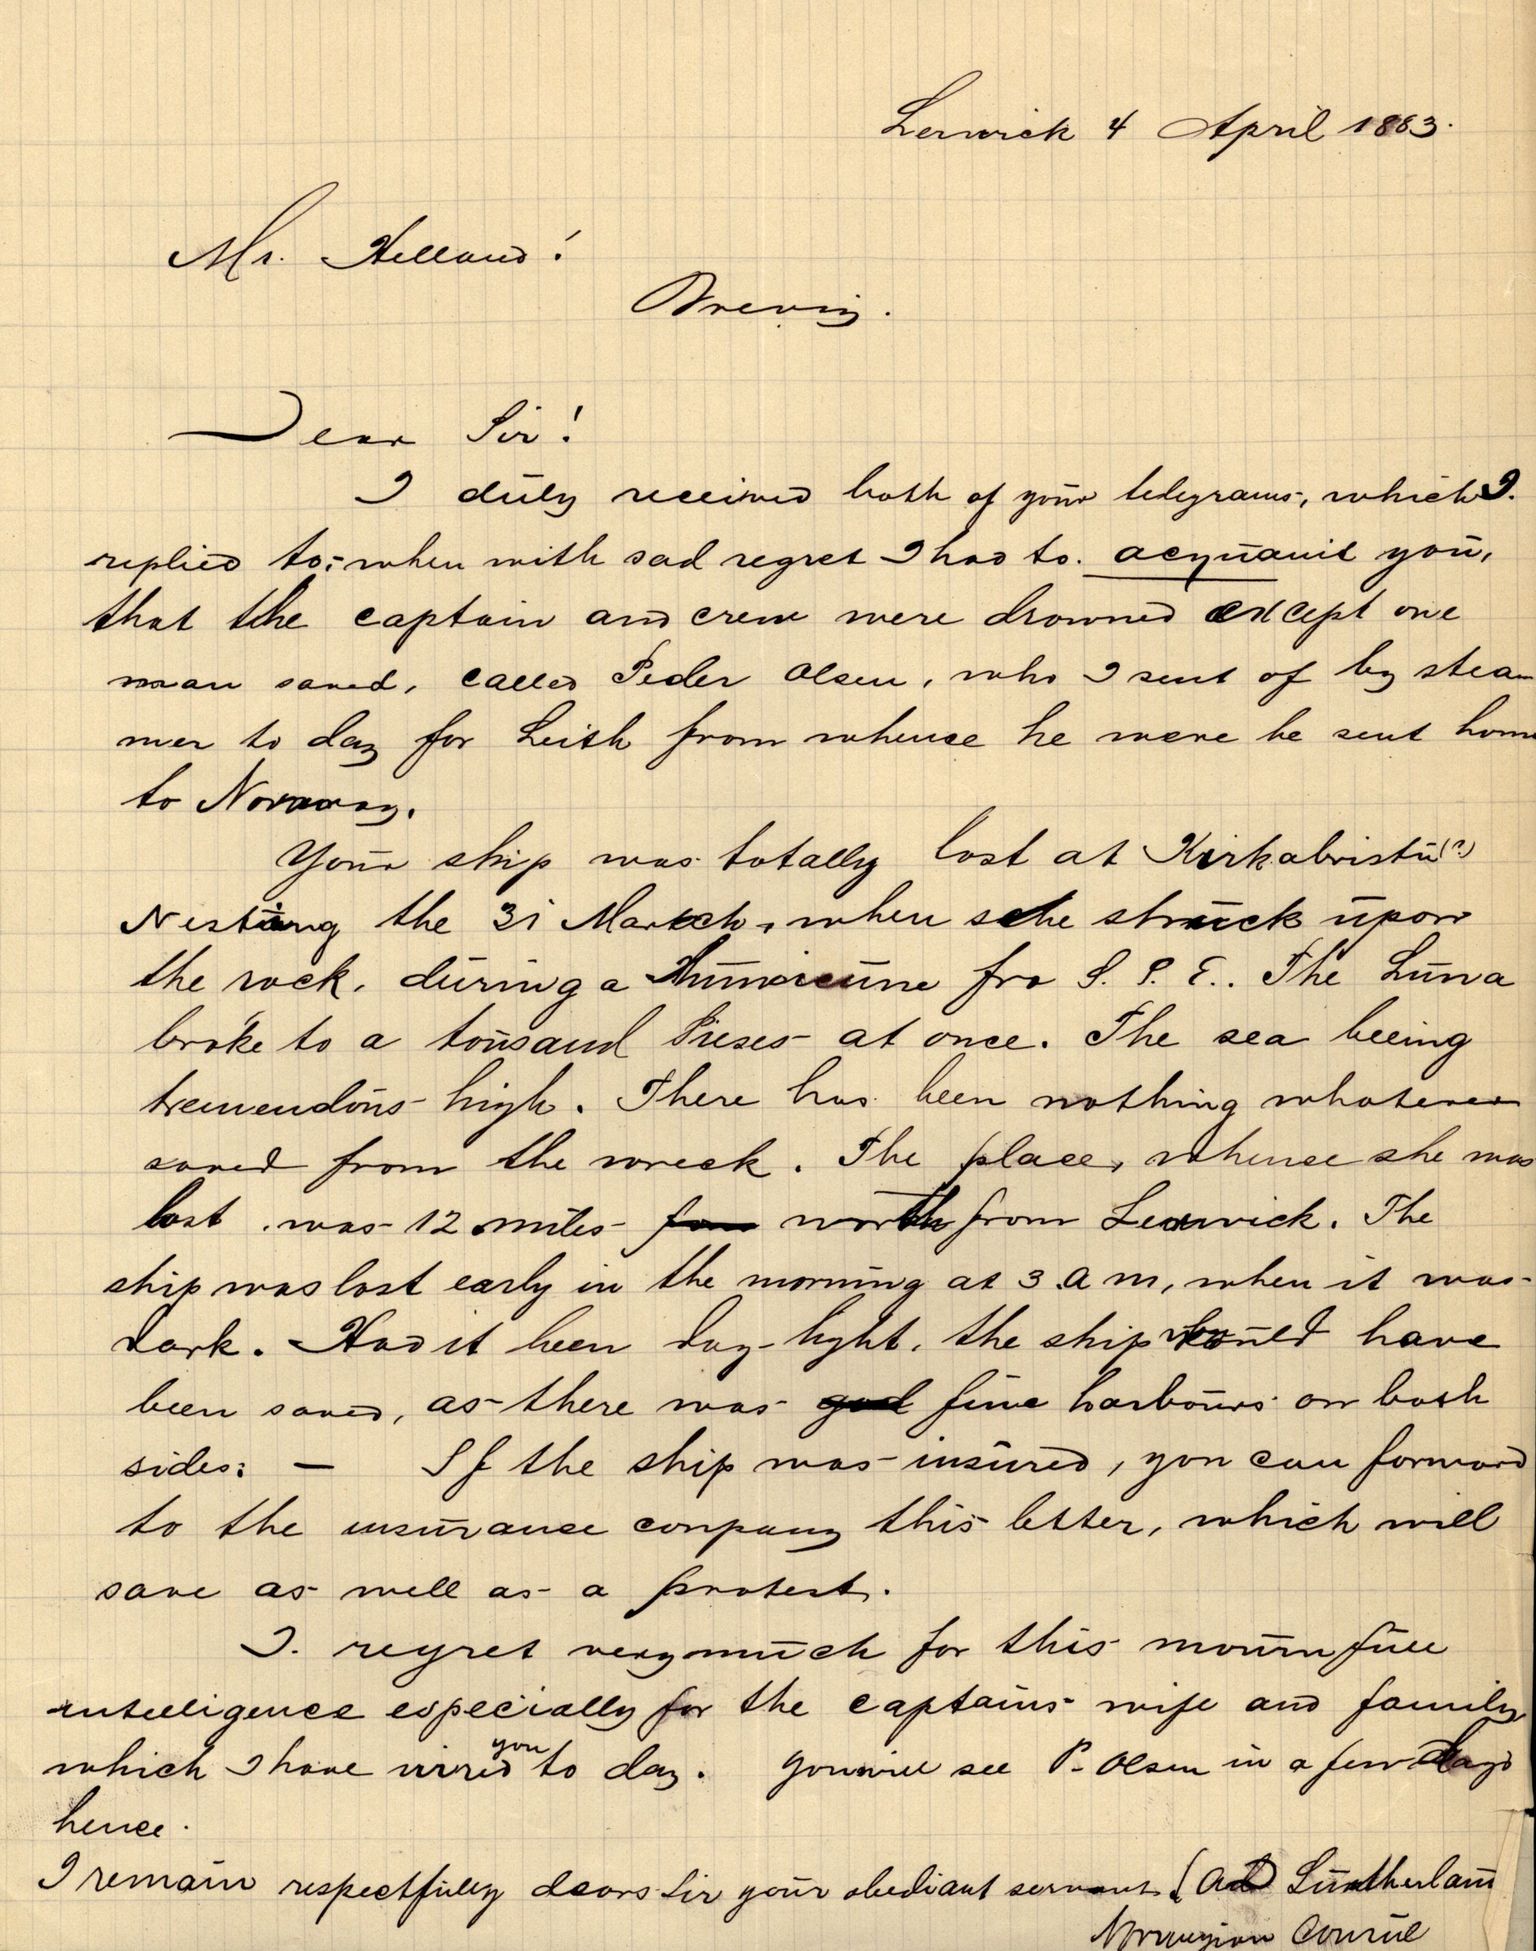 Lerwick 4 April 1883.
Mr. Helland!
Brevig.
Dear Sir!
I duly received both of your telegrams, which I.
replied to:- when with sad regret I had to. acquanit you,
that the captain and crew were drowned except one
man saved, called Peder Olsen, who I sent of by stea-
mer to day for Leith from whence he were be sent home
to Norway.
Your ship was totally lost at Kirkabristu(?)
Nesting the 31 March, when she struck upon
the rock, during a fro S. S. E.. The Luna
broke to a tousand Pieses at once. The sea beeing
tremendous high. There has been nothing whatever
saved from the wreck. The place, whence she was
lost, was 12 miles north from Lerwick. The
ship was lost early in the morning at 3 a m, when it was
dark. Had it been day-light, the ship would have
been saved, as there was god fine harbours on both
sides: — If the ship was insured, you can forward
to the insurance conpany this letter, which will
save as well as a protest.
I. regret very much for this mournfull
intelligence especially for the captains wife and family
which I have wired you to day. you will see P. Olsen in a few days
hence.
I remain respectfully dears Sir your obediant servant. ( Sutherland
Norwegian Consul